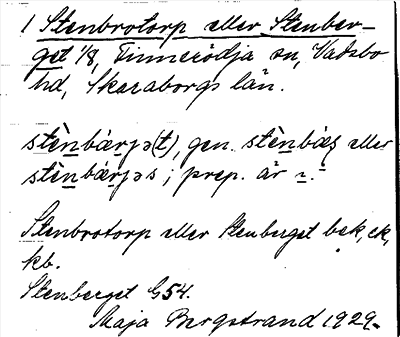 1 Stenbrotorp eller Stenber-
get 1/8, Finnerödja sn, Vadsbo
hd, Skaraborgs län.
stèn̲bár̲jə(t), gen. stèn̲bæs eller
stèn̲bár̲jəs; prep. är
Stenbrotorp eller Stenberget bek, ek,
kb.
Stenberget G54.
Maja Bergstrand 1929.